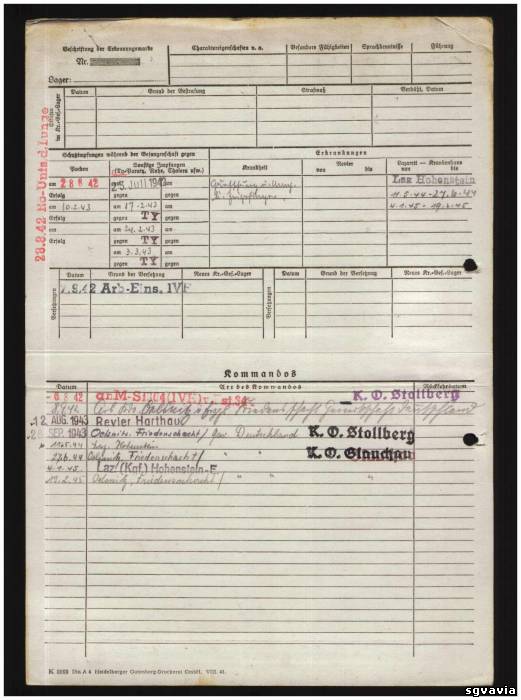 Beschriftung der Erkennungsmarke
Nr.
Lager:
Charaktereigenschaften u. a.
Besondere Fähigkeiten
Sprachkenntnisse
Führung
Datum
Grund der Bestrafung
Strafmaß
Verbüßt, Datum
Strafen im Kr.-Gef.-Lager
28.8.42 Rö-Unts.d.Lunge
Schutzimpfungen während der Gefangenschaft gegen
Erkrankungen
Pocken
Sonstige Impfungen
(Ty. Paraty, Ruhr, Cholera usw.)
Krankheit
Revier
von bis
Lazarett — Krankenhaus
von bis
am 28 8 42
am 23. Juli 1942
am
Laz Hohenstein
Erfolg
gegen
gegen
11.5.44-27.6.44
am 10.2.43
am 17.2.43
am
4.1.45 - 19.2.45
Erfolg
gegen TY
gegen
am
am 24.2.43
am
Erfolg
gegen TY
gegen
am 3.3.43
am
gegen TY
gegen
Versetzungen
Datum
Grund der Versetzung
Neues Kr.-Gef.-Lager
Versetzungen
Datum
Grund der Versetzung
Neues Kr.-Gef.-Lager
9.42 Arb-Eins. IVF
Kommandos
Datum
Art des Kommandos
Rückkehrdatum
-8 9 42
K. O. Stollberg
12 AUG. 1943 Revier Harthau
SEP. 1943 Oelsnitz. Friedenschacht / Gew. Deutschland K. O. Stollberg
11.5.44 Laz. Hohenstein
27.6.44 Oelsnitz, Friedenschacht / " K. O. Glauchau
4.1.45. Laz. (Kgf.) Hohenstein-E
19.2.45 Oelsnitz, Friedenschacht / " " "
K 5069 Din A 4 Heidelberger Gutenberg-Druckerei GmbH. VIII. 41.
sgvavia